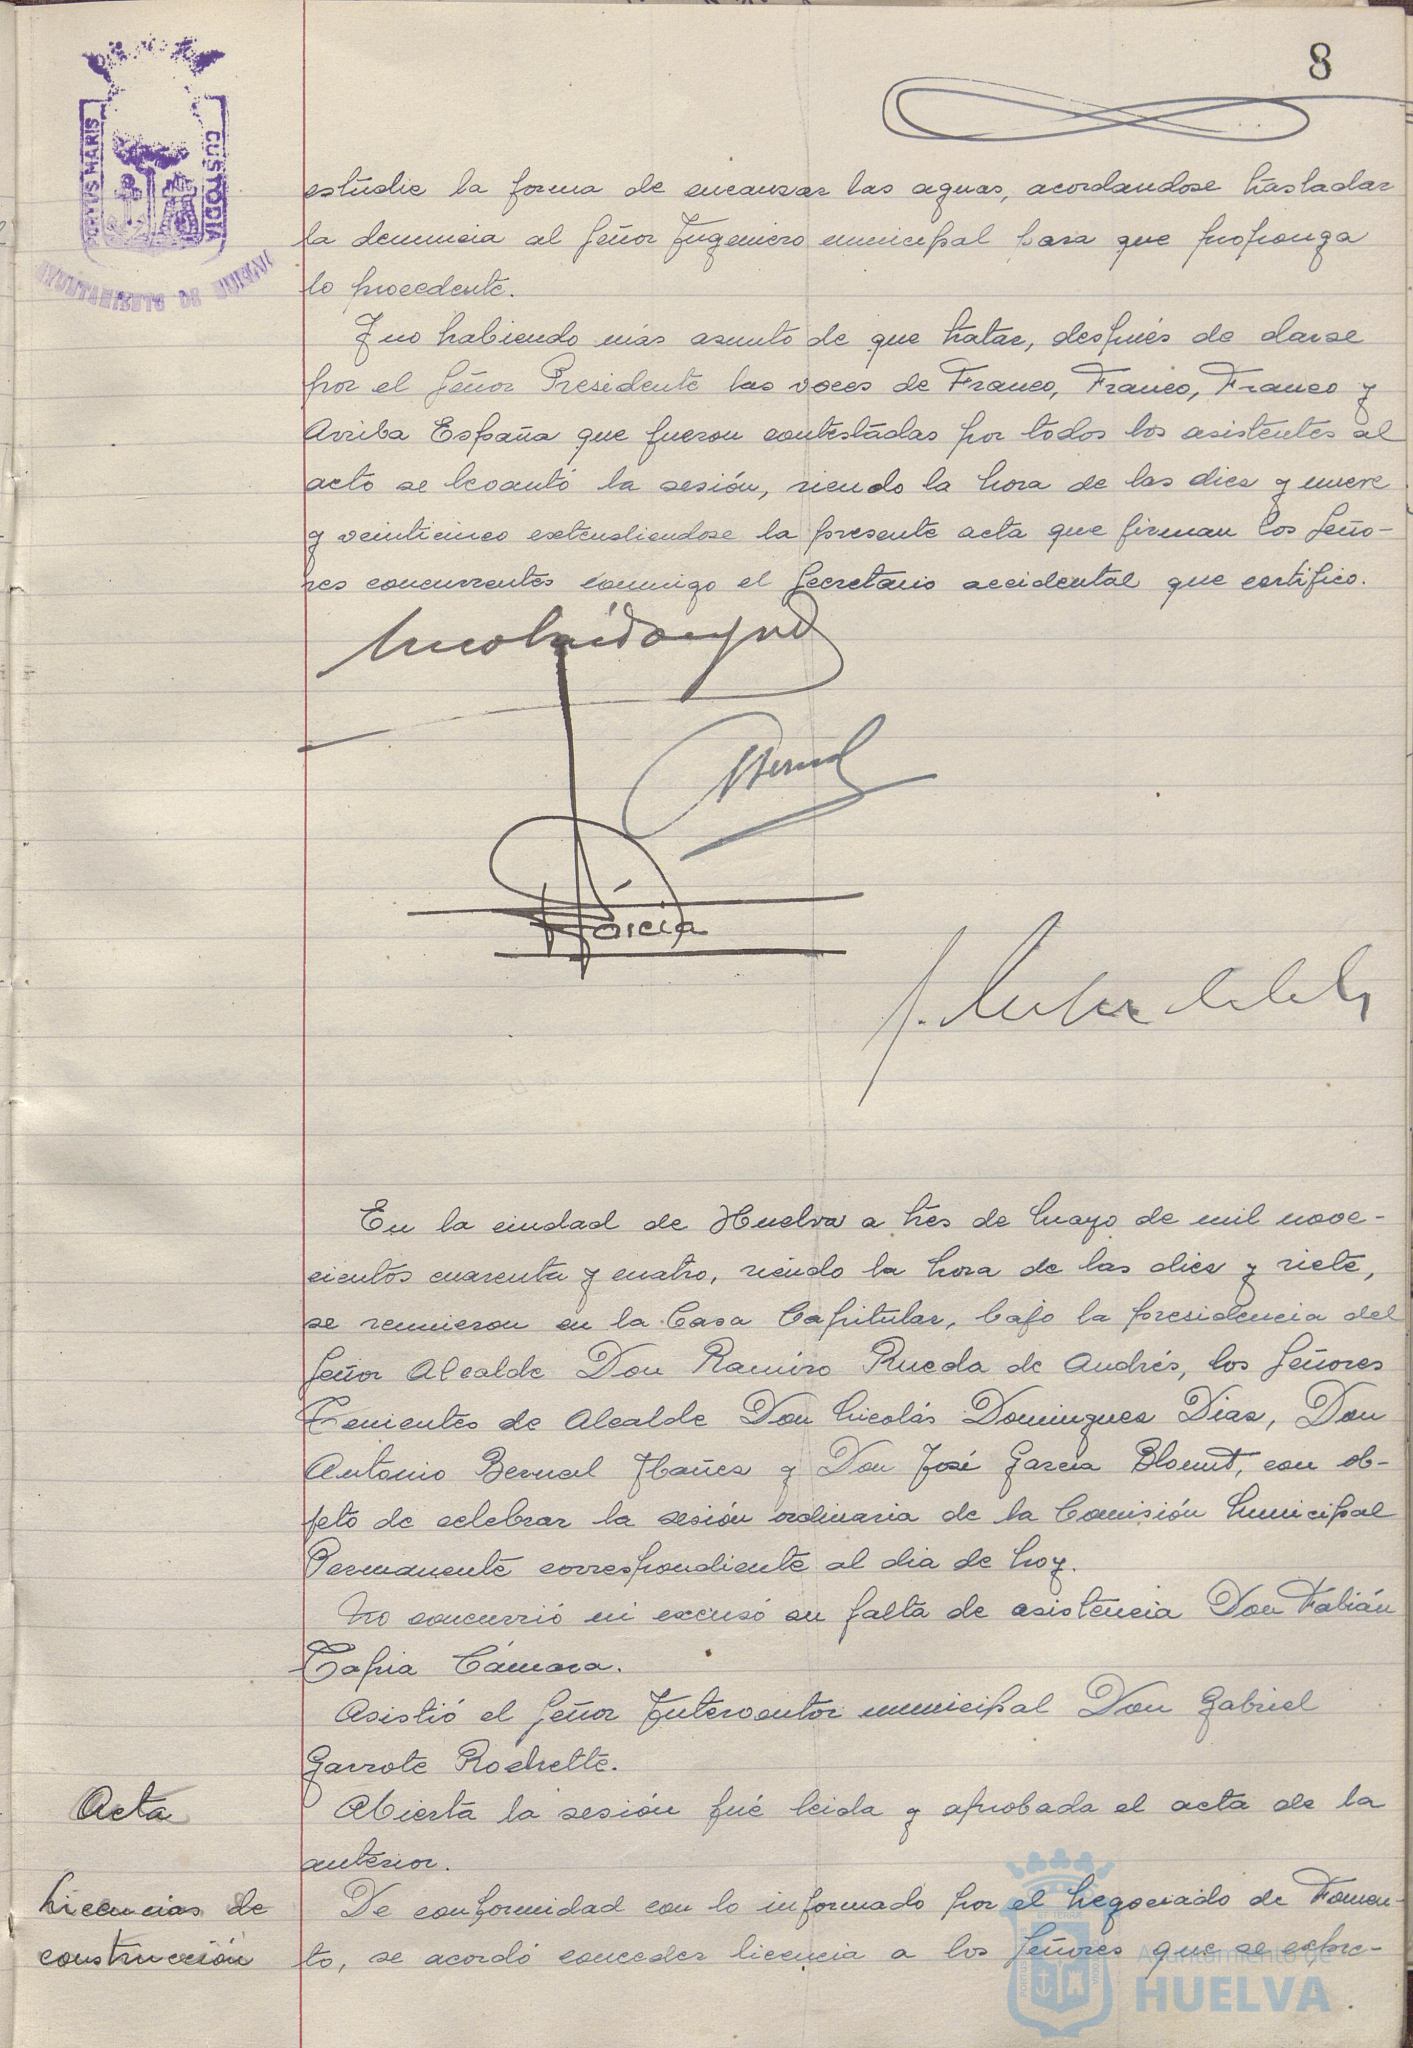 8
PORTUS MARIS
CUSTODIA
AYUNTAMIENTO DE HUELVA
estudie la forma de encauzar las aguas, acordandose trasladar
la denuncia al Señor Ingeniero municipal para que proponga
lo procedente.
Y no habiendo más asunto de que tratar, después de darse
por el Señor Presidente las voces de Franco, Franco, Franco y
Arriba España que fueron contestadas por todos los asistentes al
acto se levantó la sesión, siendo la hora de las diez y nueve
y veinticinco extendiendose la presente acta que firman los Seño-
res concurrentes conmigo el Secretario accidental que certifico.
Nicolás Domínguez
ABernal
García
En la ciudad de Huelva a tres de Mayo de mil nove-
cientos cuarenta y cuatro, siendo la hora de las diez y siete,
se reunieron en la Casa Capitular, bajo la presidencia del
Señor Alcalde Don Ramiro Rueda de Andrés, los Señores
Tenientes de Alcalde Don Nicolás Dominguez Diaz, Don
Antonio Bernal Ibañez y Don José García Blomit, con ob-
jeto de celebrar la sesión ordinaria de la Comisión Municipal
Permanente correspondiente al dia de hoy.
No concurrió ni excusó su falta de asistencia Don Fabián
Tapia Cámara.
Asistió el Señor Interventor municipal Don Gabriel
Garrote Rochette.
Acta
Abierta la sesión fué leida y aprobada el acta de la
anterior.
Licencias de
construcción
De conformidad con lo informado por el Negociado de Fomen-
to, se acordó conceder licencia a los Señores que se expre-
Ayuntamiento de
HUELVA